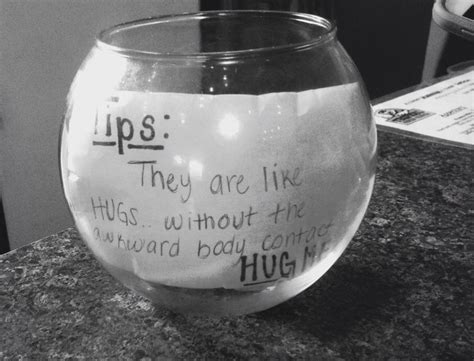 Tips:
They are like
HUGS.. without the
awkward body contact
HUG ME